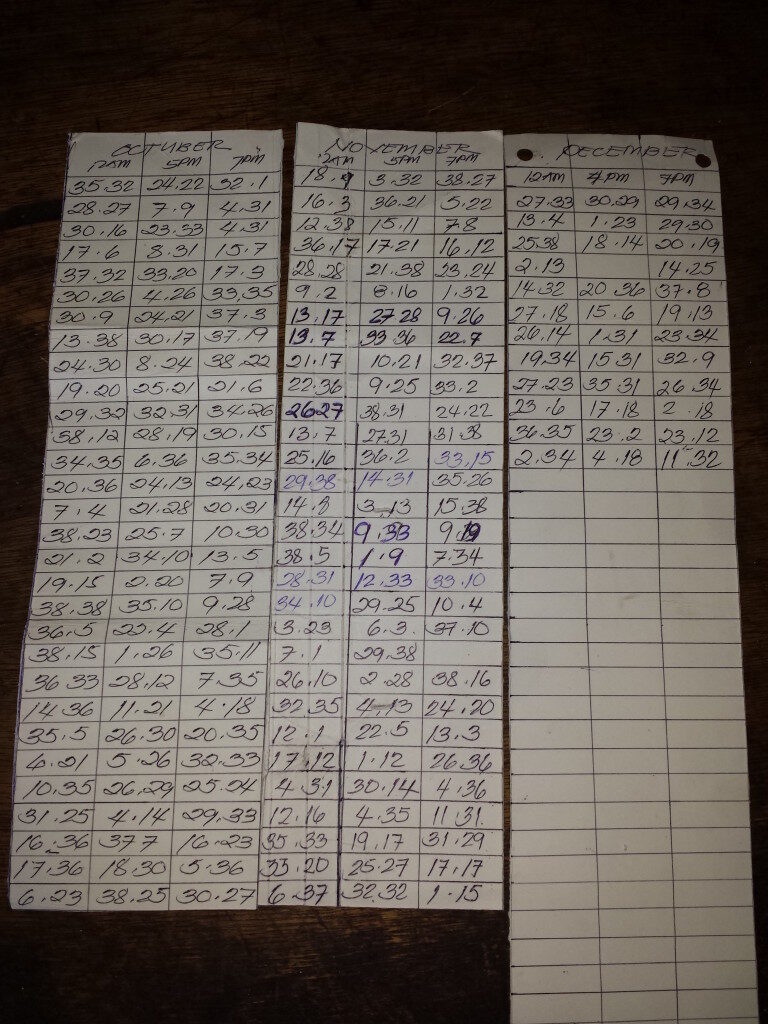 OCTOBER
5PM 7PM
35.32 24.22 32.1
28.27 7.9 4.31
30.16 23.33 4.31
17.6 8.31 15.7
37.32 33.20 17.3
30.26 4.26 33.35
30.9 24.21 37.3
13.38 30.17 37.19
24.30 8.24 38.22
19.20 25.21 21.6
29.32 32.31 34.26
38.12 28.19 30.15
34.35 6.36 35.34
20.36 24.13 24.23
7.4 21.28 20.31
38.23 25.7 10.30
21.2 34.10 13.5
19.15 2.20 7.9
38.38 35.10 9.28
36.5 22.4 28.1
38.15 1.26 35.11
36 33 28.12 7.35
14.36 11.21 4.18
35.5 26.30 20.35
6.21 5.26 32.33
10.35 26.29 25.24
31.25 4.14 29.33
16.36 37 7 16.23
17.36 18.30 5.36
6.23 38.25 30.27
NOVEMBER
12AM 5PM 7PM
18.9 3.32 38.27
16.3 36.21 5.22
12.38 15.11 7.8
36.17 17.21 16.12
28.28 21.38 23.24
9.2 8.16 1.32
13.17 27 28 9.26
13.7 33 36 22.7
21.17 10.21 32.37
22.36 9.25 33.2
26 27 38.31 24.22
13.7 27.31 31.38
25.16 36.2 33.15
29.38 14.31 35.26
14.8 3.13 15.38
38.34 9.33 9.19
38.5 1.9 7.34
28.31 12.33 33.10
34.10 29.25 10.4
3.23 6.3 37.10
7.1 29.38
26.10 2.28 38.16
32.35 4.13 24.20
12.1 22.5 13.3
17.12 1.12 26.36
4.31 30.14 4.36
12.16 4.35 11 31
35.33 19.17 31.29
33.20 25.27 17.17
6.37 32.32 1.15
DECEMBER
12AM 4PM 7PM
27.33 30.29 29.34
13.4 1.23 29.30
25.38 18.14 20.19
2.13 14.25
14.32 20 36 37.8
27.18 15.6 19.13
26.14 1.31 23.34
19.34 15.31 32.9
27.23 35.31 26.34
23.6 17.18 2.18
36.35 23.2 23.12
2.34 4.18 11.32